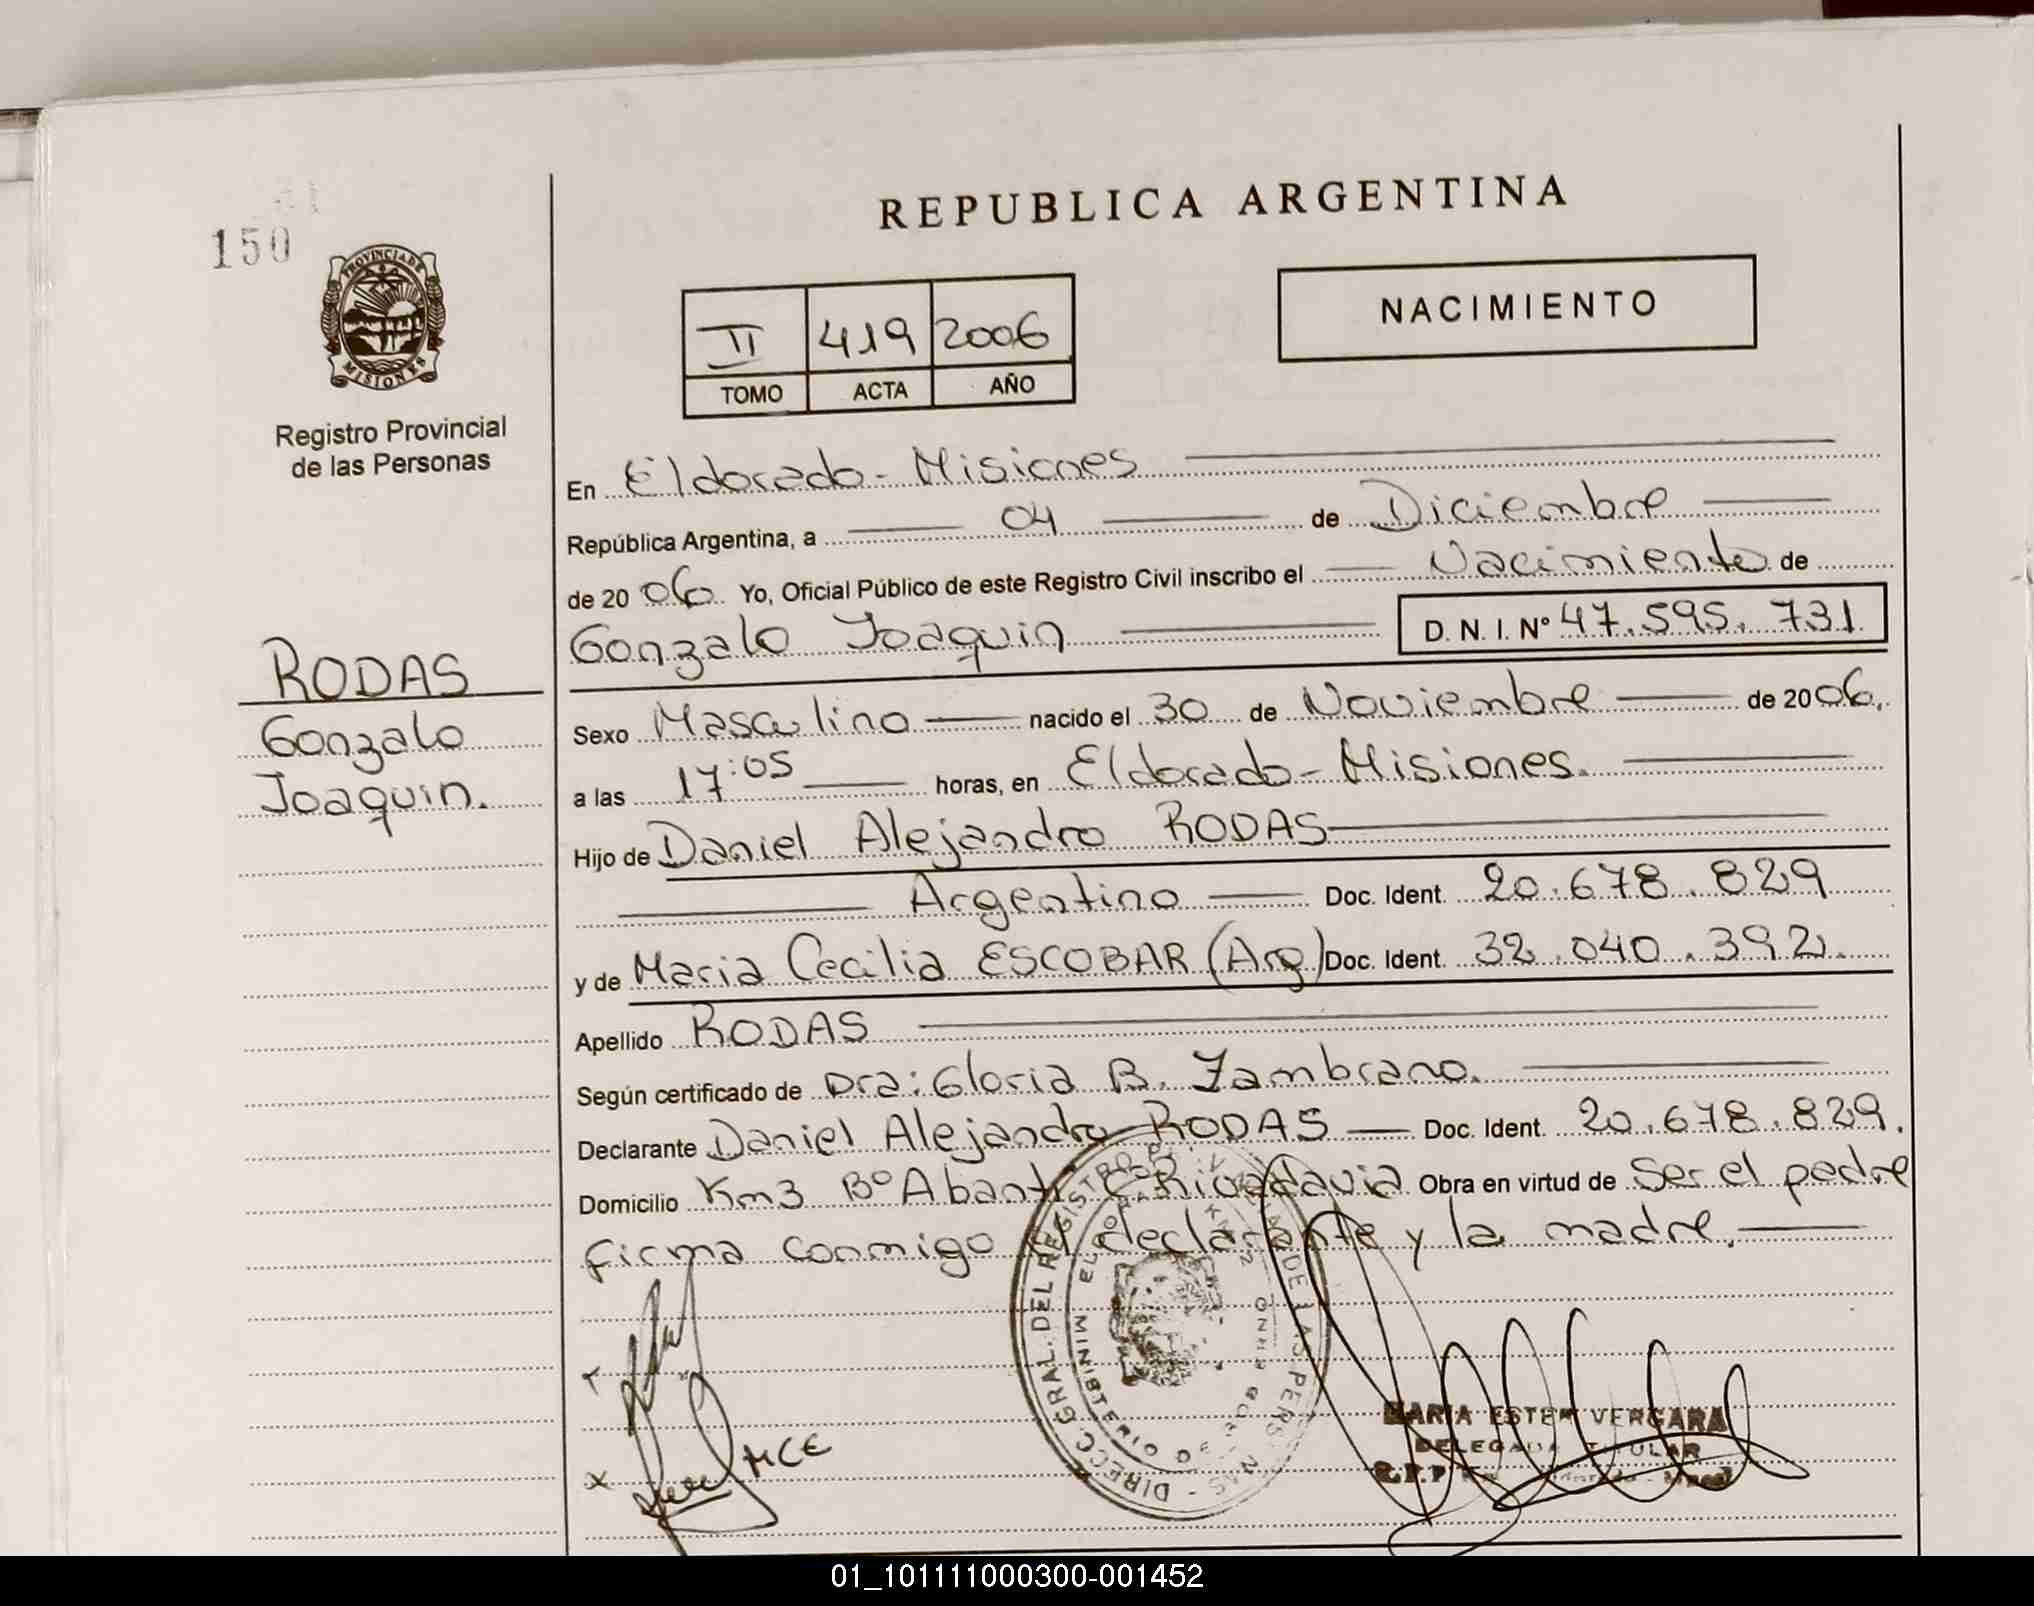 REPUBLICA ARGENTINA
150
PROVINCIA DE
MISIONES
Registro Provincial
de las Personas
II 419 2006
TOMO ACTA AÑO
NACIMIENTO
En Eldorado - Misiones
República Argentina, a 04 de Diciembre
de 2006 Yo, Oficial Público de este Registro Civil inscribo el Nacimiento de
Gonzalo Joaquin D. N. I. Nº 47.595.731
RODAS
Gonzalo
Joaquin.
Sexo Masculino nacido el 30 de Noviembre de 2006.
a las 17:05 horas, en Eldorado - Misiones.
Hijo de Daniel Alejandro RODAS
Argentino Doc. Ident. 20.678.829
y de Maria Cecilia ESCOBAR (Arg) Doc. Ident. 32.040.392.
Apellido RODAS
Según certificado de Dra: Gloria B. Zambrano.
Declarante Daniel Alejandro RODAS Doc. Ident. 20.678.829.
Domicilio Km3 Bº Rivadavia Obra en virtud de Ser el padre
firma conmigo el declarante y la madre.
MCE
DIRECC. GRAL. DEL REGISTRO
MINISTERIO DE
MARIA ESTER VERGARA
DELEGADA TITULAR
01_101111000300-001452